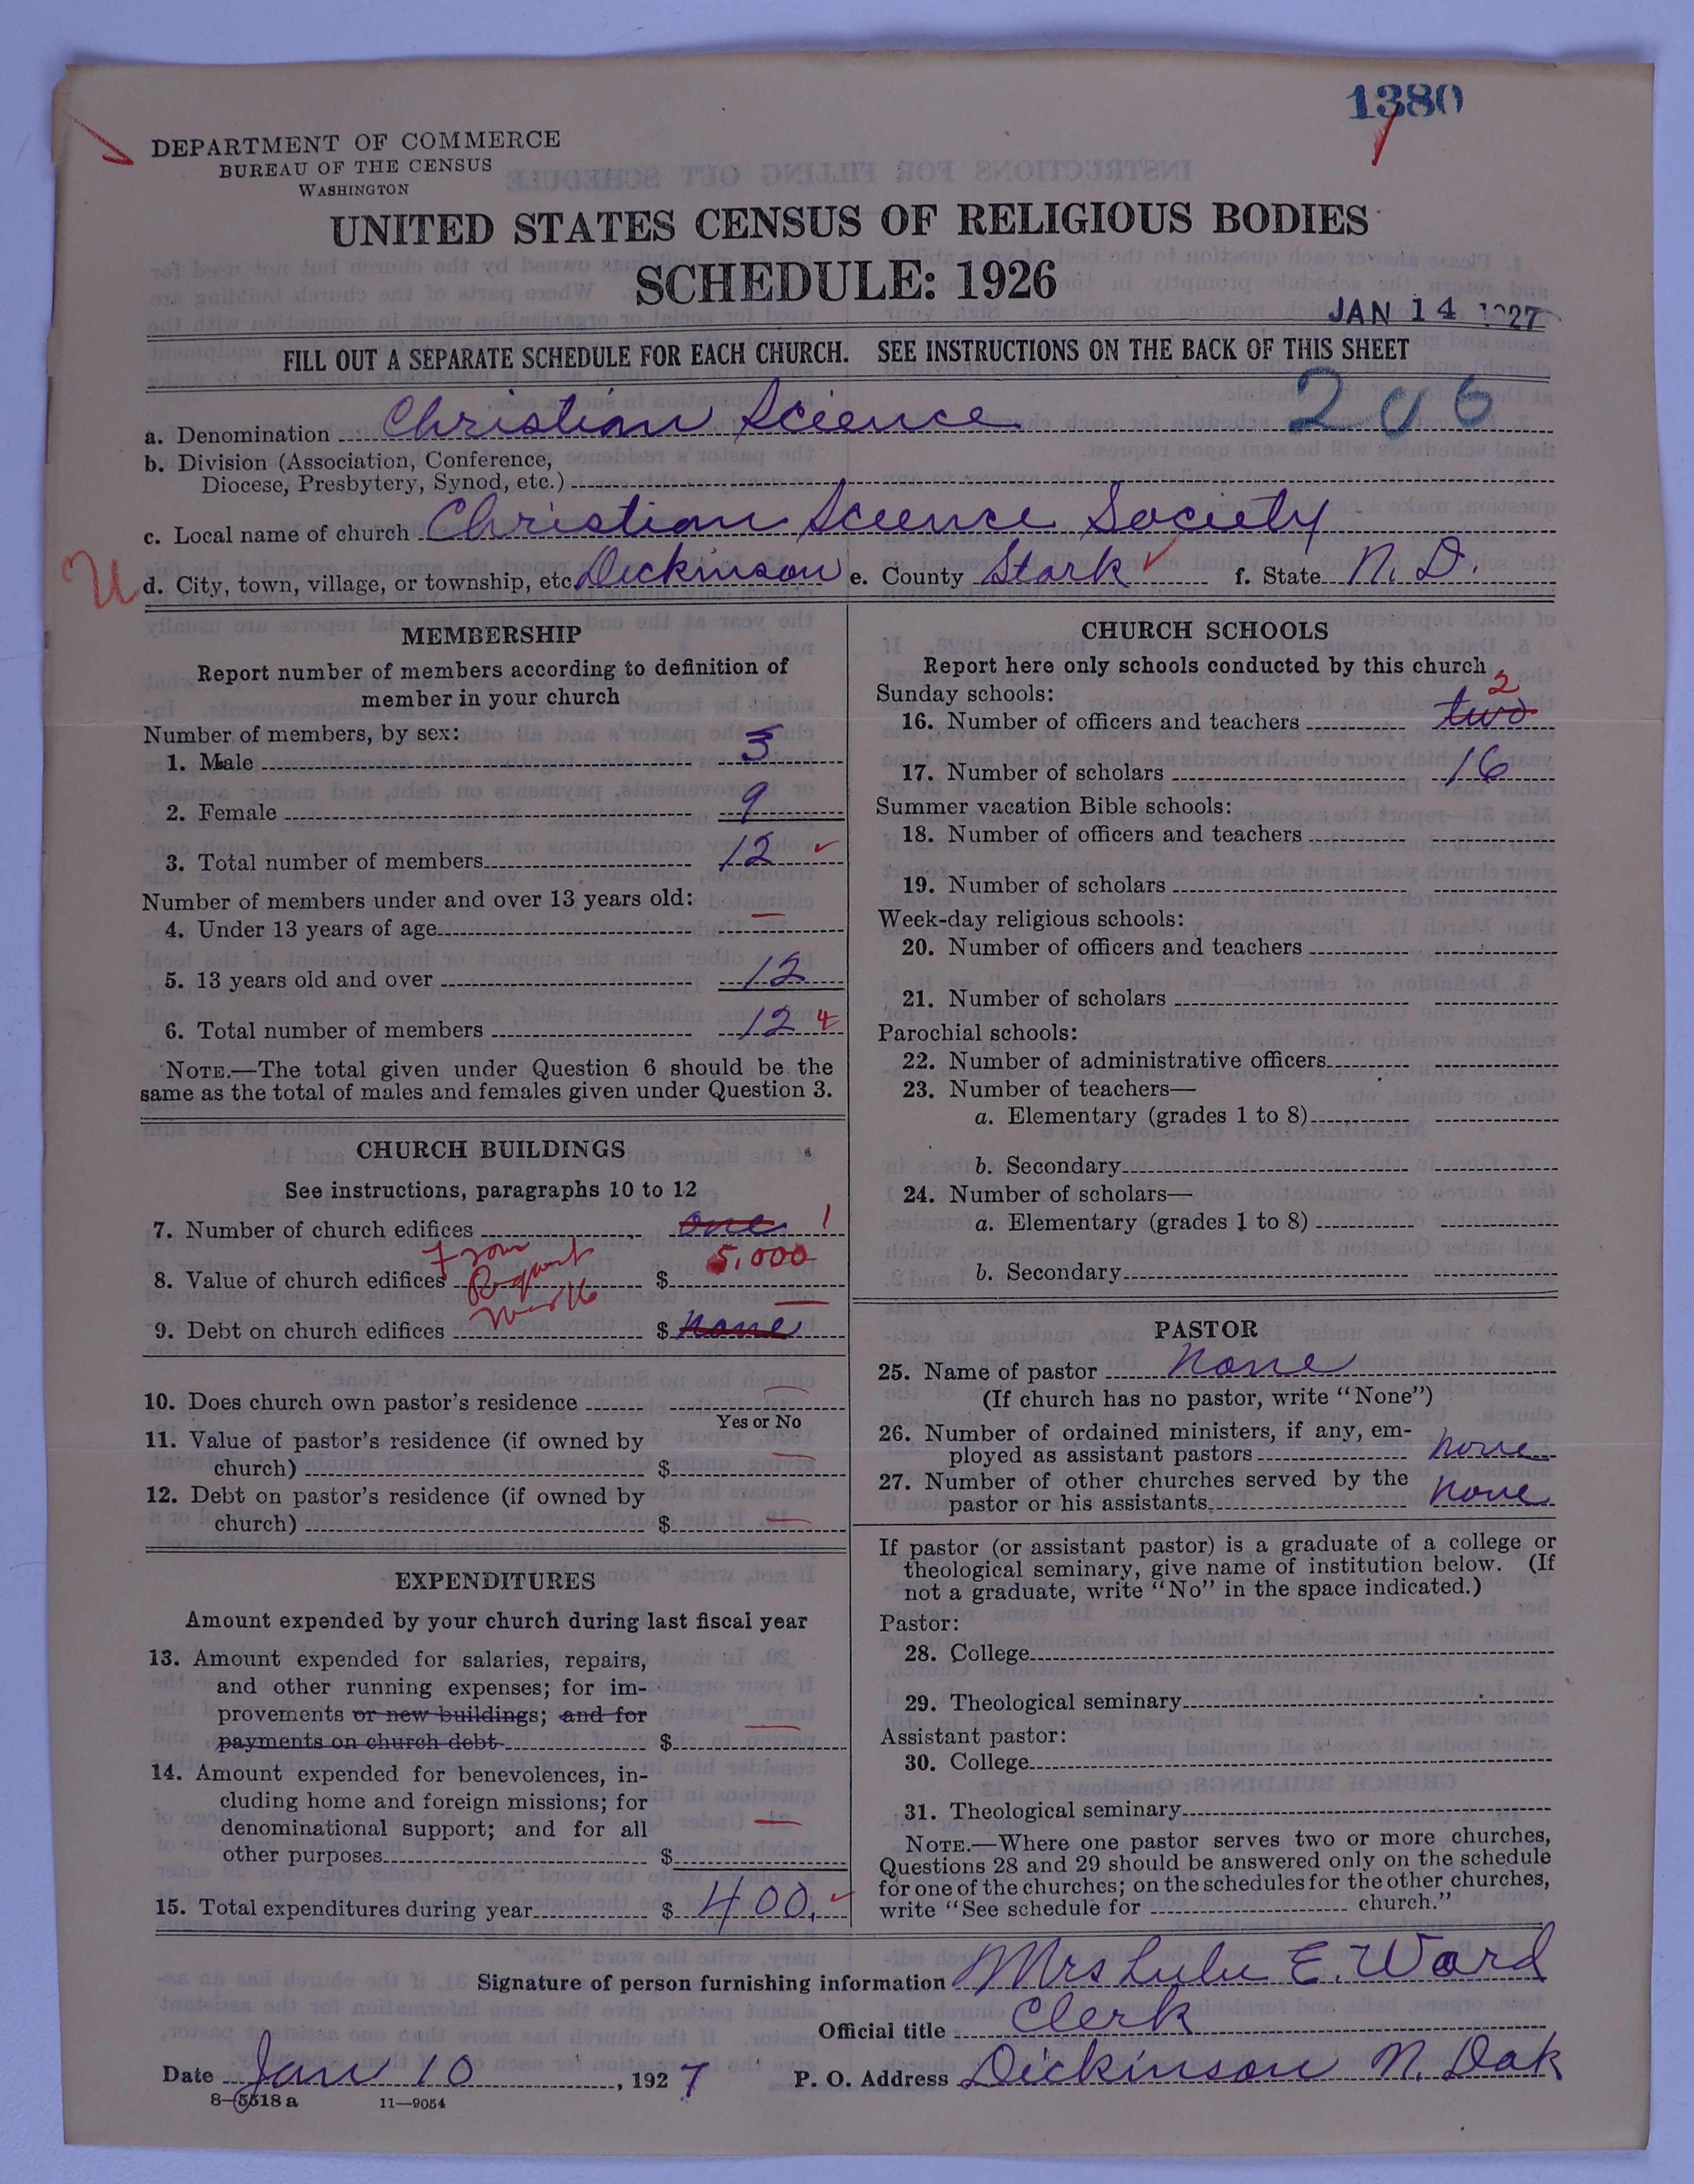 1380
DEPARTMENT OF COMMERCE
BUREAU OF THE CENSUS
WASHINGTON
UNITED STATES CENSUS OF RELIGIOUS BODIES
SCHEDULE: 1926
JAN 14 1927
FILL OUT A SEPARATE SCHEDULE FOR EACH CHURCH. SEE INSTRUCTIONS ON THE BACK OF THIS SHEET
206
a. Denomination Christian Science
b. Division (Association, Conference,
Diocese, Presbytery, Synod, etc.)
c. Local name of church Christian Science Society
U d. City, town, village, or township, etc. Dickinson e. County Stark f. State N. D.
MEMBERSHIP
Report number of members according to definition of
member in your church
Number of members, by sex:
1. Male 3
2. Female 9
3. Total number of members 12
Number of members under and over 13 years old:
4. Under 13 years of age —
5. 13 years old and over 12
6. Total number of members 12
NOTE.—The total given under Question 6 should be the
same as the total of males and females given under Question 3.
CHURCH BUILDINGS
See instructions, paragraphs 10 to 12
7. Number of church edifices one 1
8. Value of church edifices From Request $ 5,000
9. Debt on church edifices $ none —
10. Does church own pastor's residence —
Yes or No
11. Value of pastor's residence (if owned by
church) $ —
12. Debt on pastor's residence (if owned by
church) $ —
EXPENDITURES
Amount expended by your church during last fiscal year
13. Amount expended for salaries, repairs,
and other running expenses; for im-
provements or new buildings; and for
payments on church debt $ —
14. Amount expended for benevolences, in-
cluding home and foreign missions; for
denominational support; and for all
other purposes $ —
15. Total expenditures during year $ 400.
CHURCH SCHOOLS
Report here only schools conducted by this church
Sunday schools:
16. Number of officers and teachers two 2
17. Number of scholars 16
Summer vacation Bible schools:
18. Number of officers and teachers
19. Number of scholars
Week-day religious schools:
20. Number of officers and teachers
21. Number of scholars
Parochial schools:
22. Number of administrative officers
23. Number of teachers—
a. Elementary (grades 1 to 8)
b. Secondary
24. Number of scholars—
a. Elementary (grades 1 to 8)
b. Secondary
PASTOR
25. Name of pastor None
(If church has no pastor, write "None")
26. Number of ordained ministers, if any, em-
ployed as assistant pastors none
27. Number of other churches served by the
pastor or his assistants none
If pastor (or assistant pastor) is a graduate of a college or
theological seminary, give name of institution below. (If
not a graduate, write "No" in the space indicated.)
Pastor:
28. College
29. Theological seminary
Assistant pastor:
30. College
31. Theological seminary
NOTE.—Where one pastor serves two or more churches,
Questions 28 and 29 should be answered only on the schedule
for one of the churches; on the schedules for the other churches,
write "See schedule for church."
Signature of person furnishing information Mrs Lulu E. Ward
Official title Clerk
Date Jan 10, 1927 P. O. Address Dickinson N. Dak
8—5518 a 11—9054